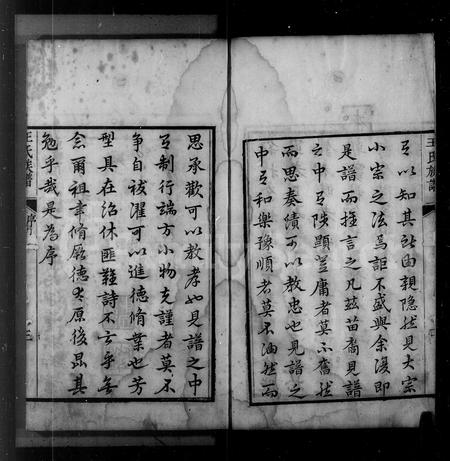 王氏族譜
有以知其所由親隱然見大宗
小宗之法焉詎不盛與余復即
是譜而推言之凡茲苗裔見譜
之中有陟顯登庸者莫不奮然
而思奏績可以教忠也見譜之
中有和樂豫順者莫不油然而
思承歡可以教孝也見譜之中
有制行端方小物克謹者莫不
争自祓濯可以進德脩業也芳
型具在紹休匪難詩不云乎無
念爾祖聿脩厥德太原後昆其
勉乎哉是為序
王氏族譜 序